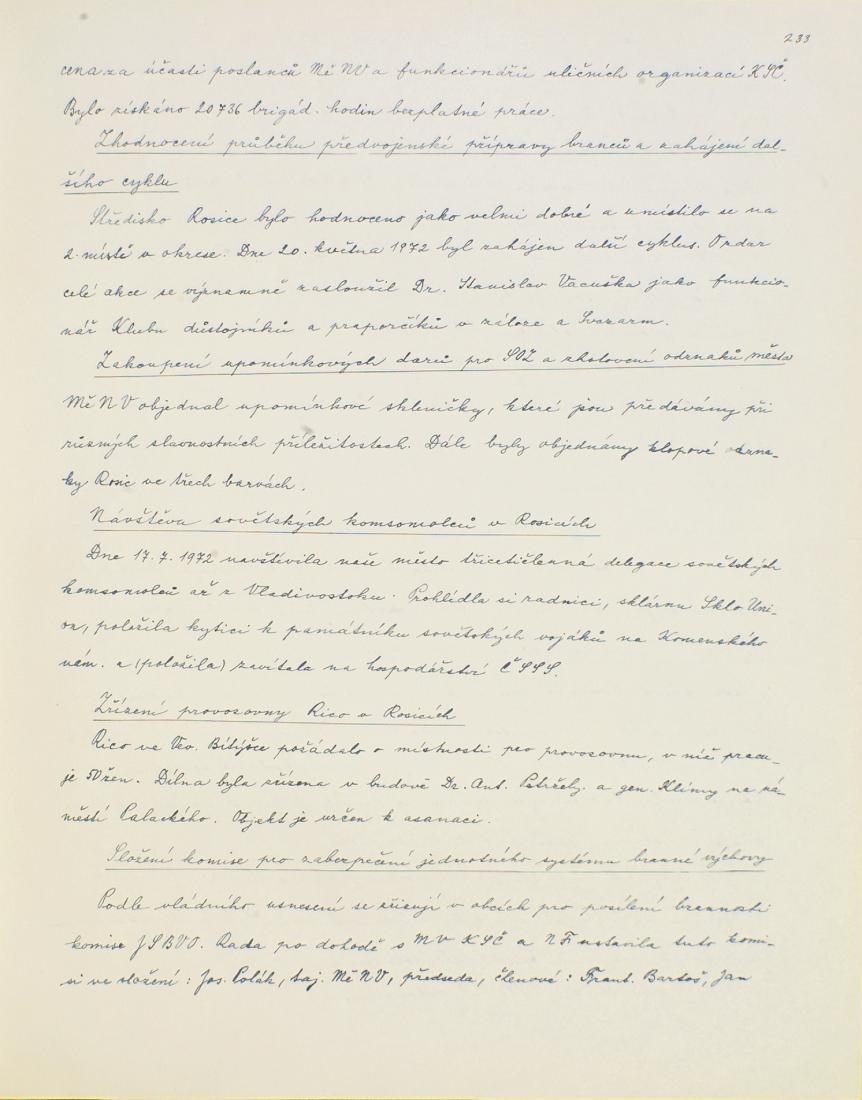 233
cena za účasti poslanců MěNV a funkcionářů uličních organizací KSČ.
Bylo získáno 20736 brigád. hodin bezplatné práce.
Zhodnocení průběhu předvojenské přípravy branců a zahájení dal-
šího cyklu
Středisko Rosice bylo hodnoceno jako velmi dobré a umístilo se na
2. místě v okrese. Dne 20. května 1972 byl zahájen další cyklus. O zdar
celé akce se významně zasloužil Dr. Stanislav Vacuška jako funkcio-
nář Klubu důstojníků a praporčíků v záloze a Svazarm.
Zakoupení upomínkových darů pro SOZ a zhotovení odznaků města
MěNV objednal upomínkové skleničky, které jsou předávány při
různých slavnostních příležitostech. Dále byly objednány klopové odzna-
ky Rosic ve třech barvách.
Návštěva sovětských komsomolců v Rosicích
Dne 17.7.1972 navštívila naše město třicetičlenná delegace sovětských
komsomolců až z Vladivostoku. Prohlídla si radnici, sklárnu Sklo Uni-
on, položila kytici k památníku sovětských vojáků na Komenského
nám. a (položila) zavítala na hospodářství ČSSS.
Zřízení provozovny Rico v Rosicích
Rico ve Vev. Bitýšce požádalo o místnosti pro provozovnu, v níž pracu-
je 50 žen. Dílna byla zřízena v budově Dr. Ant. Petržely a gen. Klímy na ná-
městí Palackého. Objekt je určen k asanaci.
Složení komise pro zabezpečení jednotného systému branné výchovy
Podle vládního usnesení se zřizují v obcích pro posílení brannosti
komise JSBVO. Rada po dohodě s MV KSČ a NF ustavila tuto komi-
si ve složení: Jos. Polák, taj. MěNV, předseda, členové: Frant. Bartoš, Jan